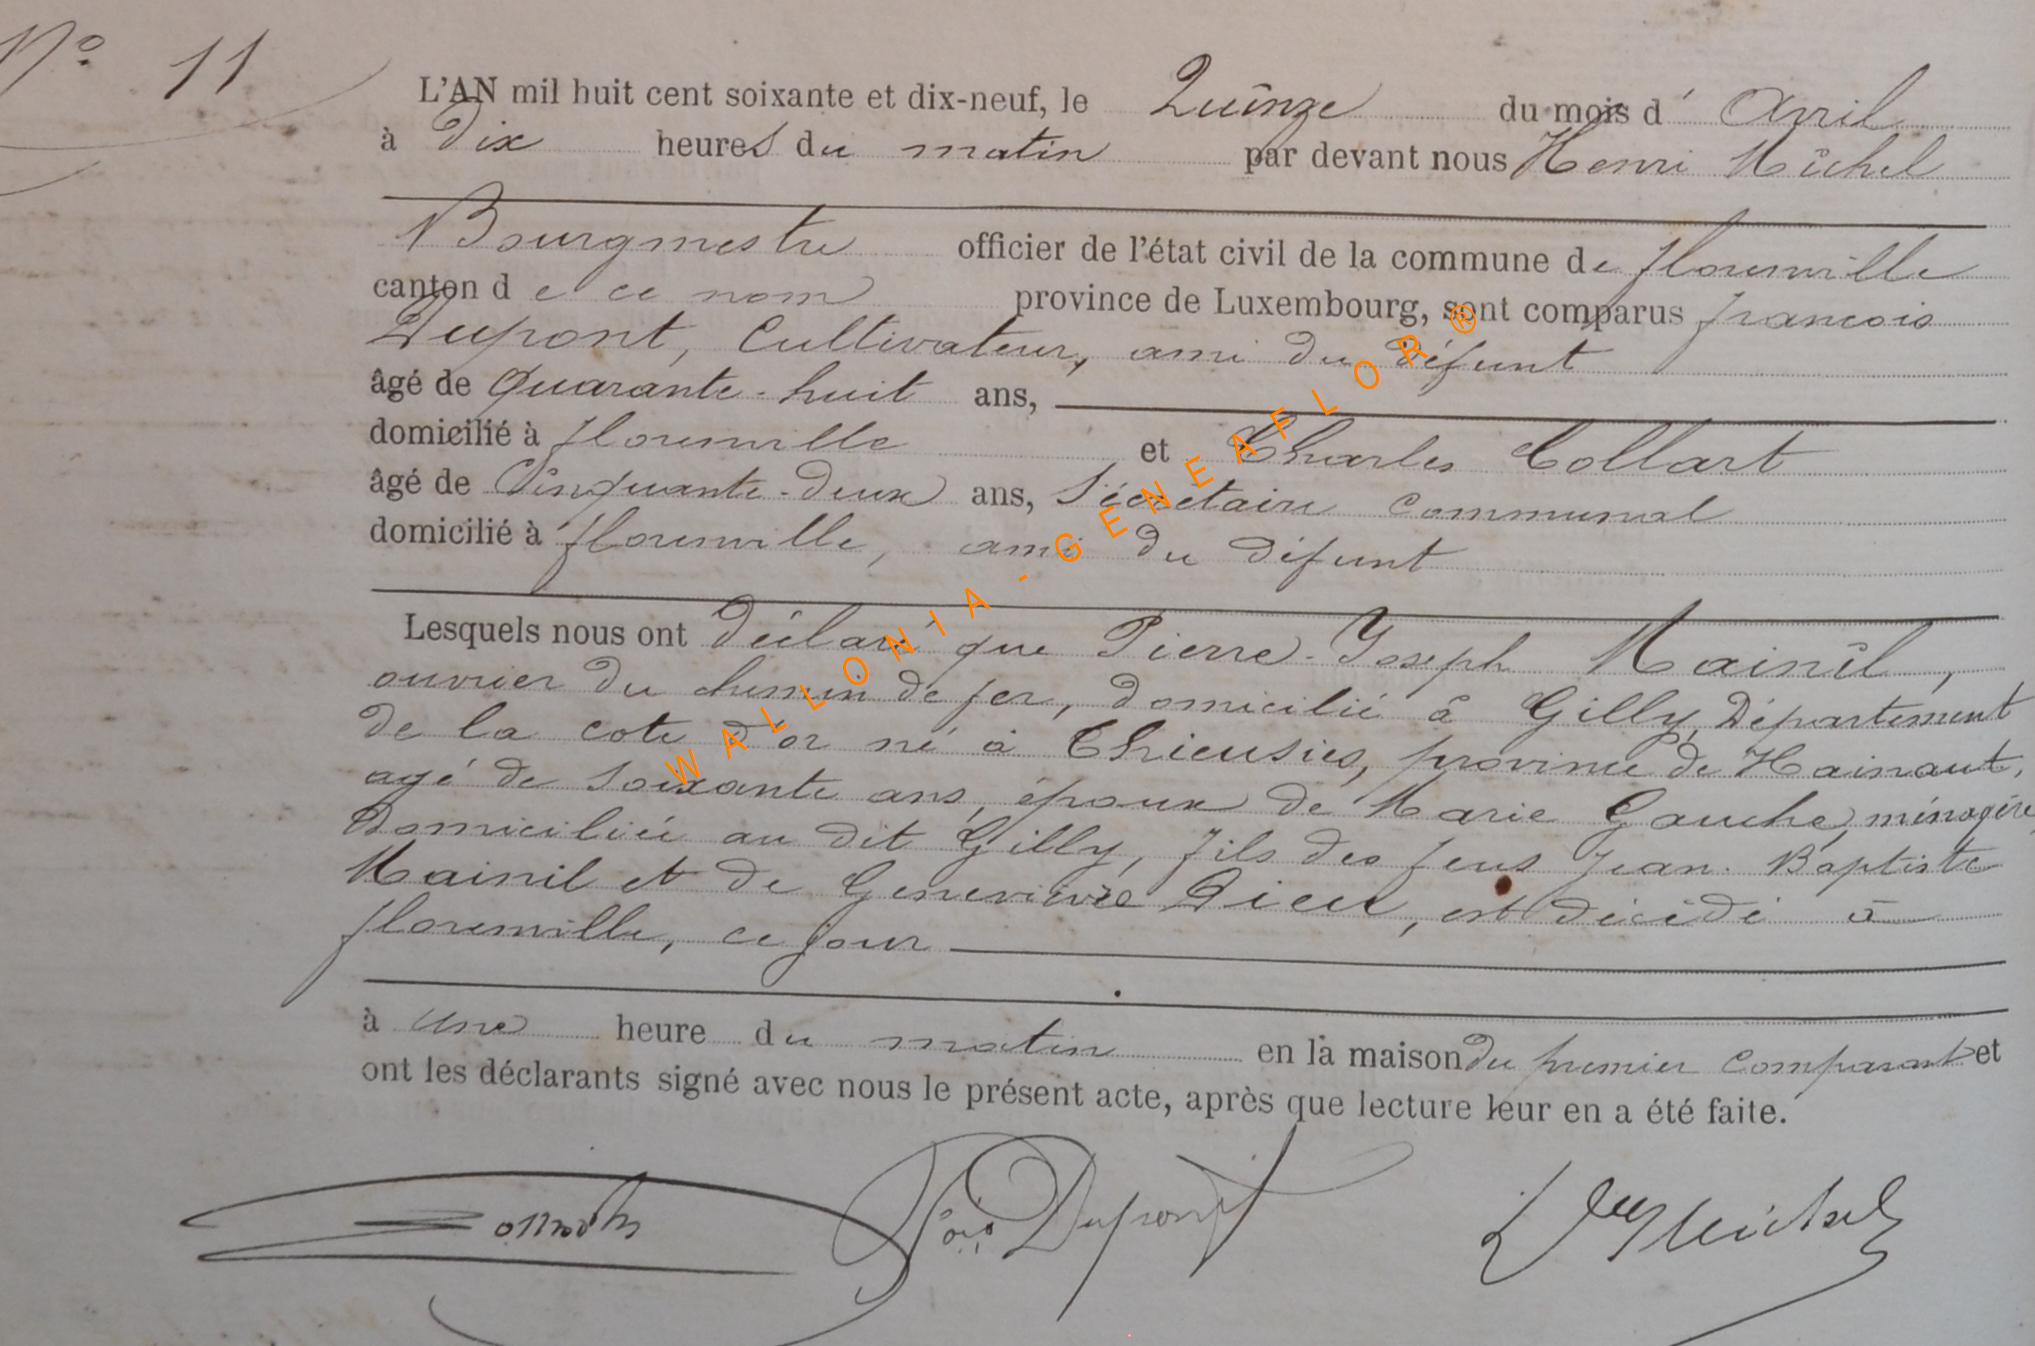 N° 11
L'AN mil huit cent soixante et dix-neuf, le Quinze du mois d' Avril
à Dix heures du matin par devant nous Henri Michel
Bourgmestre officier de l'état civil de la commune de florenville
canton de ce nom province de Luxembourg, sont comparus françois
Dupont, Cultivateur, ami du défunt
âgé de Quarante-huit ans,
domicilié à florenville et Charles Collart
âgé de Cinquante-deux ans, Sécrétaire Communal
domicilié à florenville, ami du défunt
Lesquels nous ont déclaré que Pierre-Joseph Mainil,
ouvrier du chemin de fer, domicilié à Gilly, Département
de la cote d'or né à Thieusies, province de Hainaut,
agé de soixante ans, époux de Marie Gauche, ménagère,
domiciliée au dit Gilly, fils des feus Jean-Baptiste
Mainil et de Geneviève Dieu, est décédé à
florenville, ce jour
à une heure du matin en la maison du premier comparant et
ont les déclarants signé avec nous le présent acte, après que lecture leur en a été faite.
Dupont Michel
WALLONIA-GENEAFLOR®